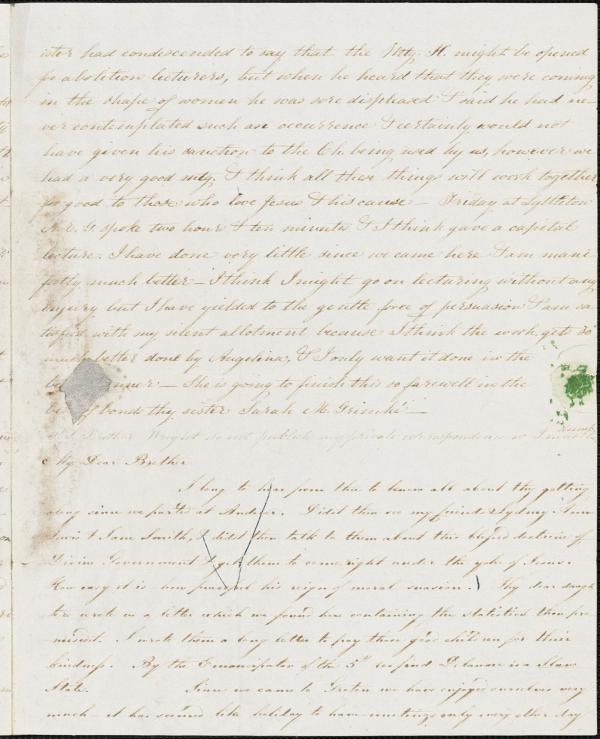 ister had condescended to say that the Mtg. H. might be opened
for abolition lecturers, but when he heard that they were coming
in the shape of women he was sore displeased & said he had ne-
ver contemplated such an occurrence & certainly would not
have given his sanction to the Ch. being used by us, however we
had a very good mtg. & I think all these things will work together
for good to those who love Jesus & his cause — Friday at Lyttleton
A. E. G. spoke two hours & ten minutes & I think gave a capital
lecture. I have done very little since we came here & am mani-
festly much better — I think I might go on lecturing without any
injury but I have yielded to the gentle force of persuasion & am sa-
tisfied with my silent allotment because I think the work gets so
much better done by Angelina, & I only want it done in the
manner — She is going to finish this so farewell in the
bonds thy sister Sarah M. Grimké —
Brother Wright do not publish my private correspondence
My Dear Brother
I long to hear from thee to know all about thy getting
along since we parted at Andover. Didst thou see my friends
Lewis & Jane Smith, & didst thou talk to them about this blessed doctrine of
Divine Government & get them to come right under the yoke of Jesus.
How easy it is how peaceful his reign of moral suasion. Thy dear daugh
ter wrote us a letter which we found here containing the statistics thou pro
misedst. I wrote them a long letter to pay these good children for their
kindness. By the Emancipator of the 5th we find Delaware is a Slave
State. Since we came to Groton we have enjoyed ourselves very
much — it has seemed like holiday to have meetings only every other day